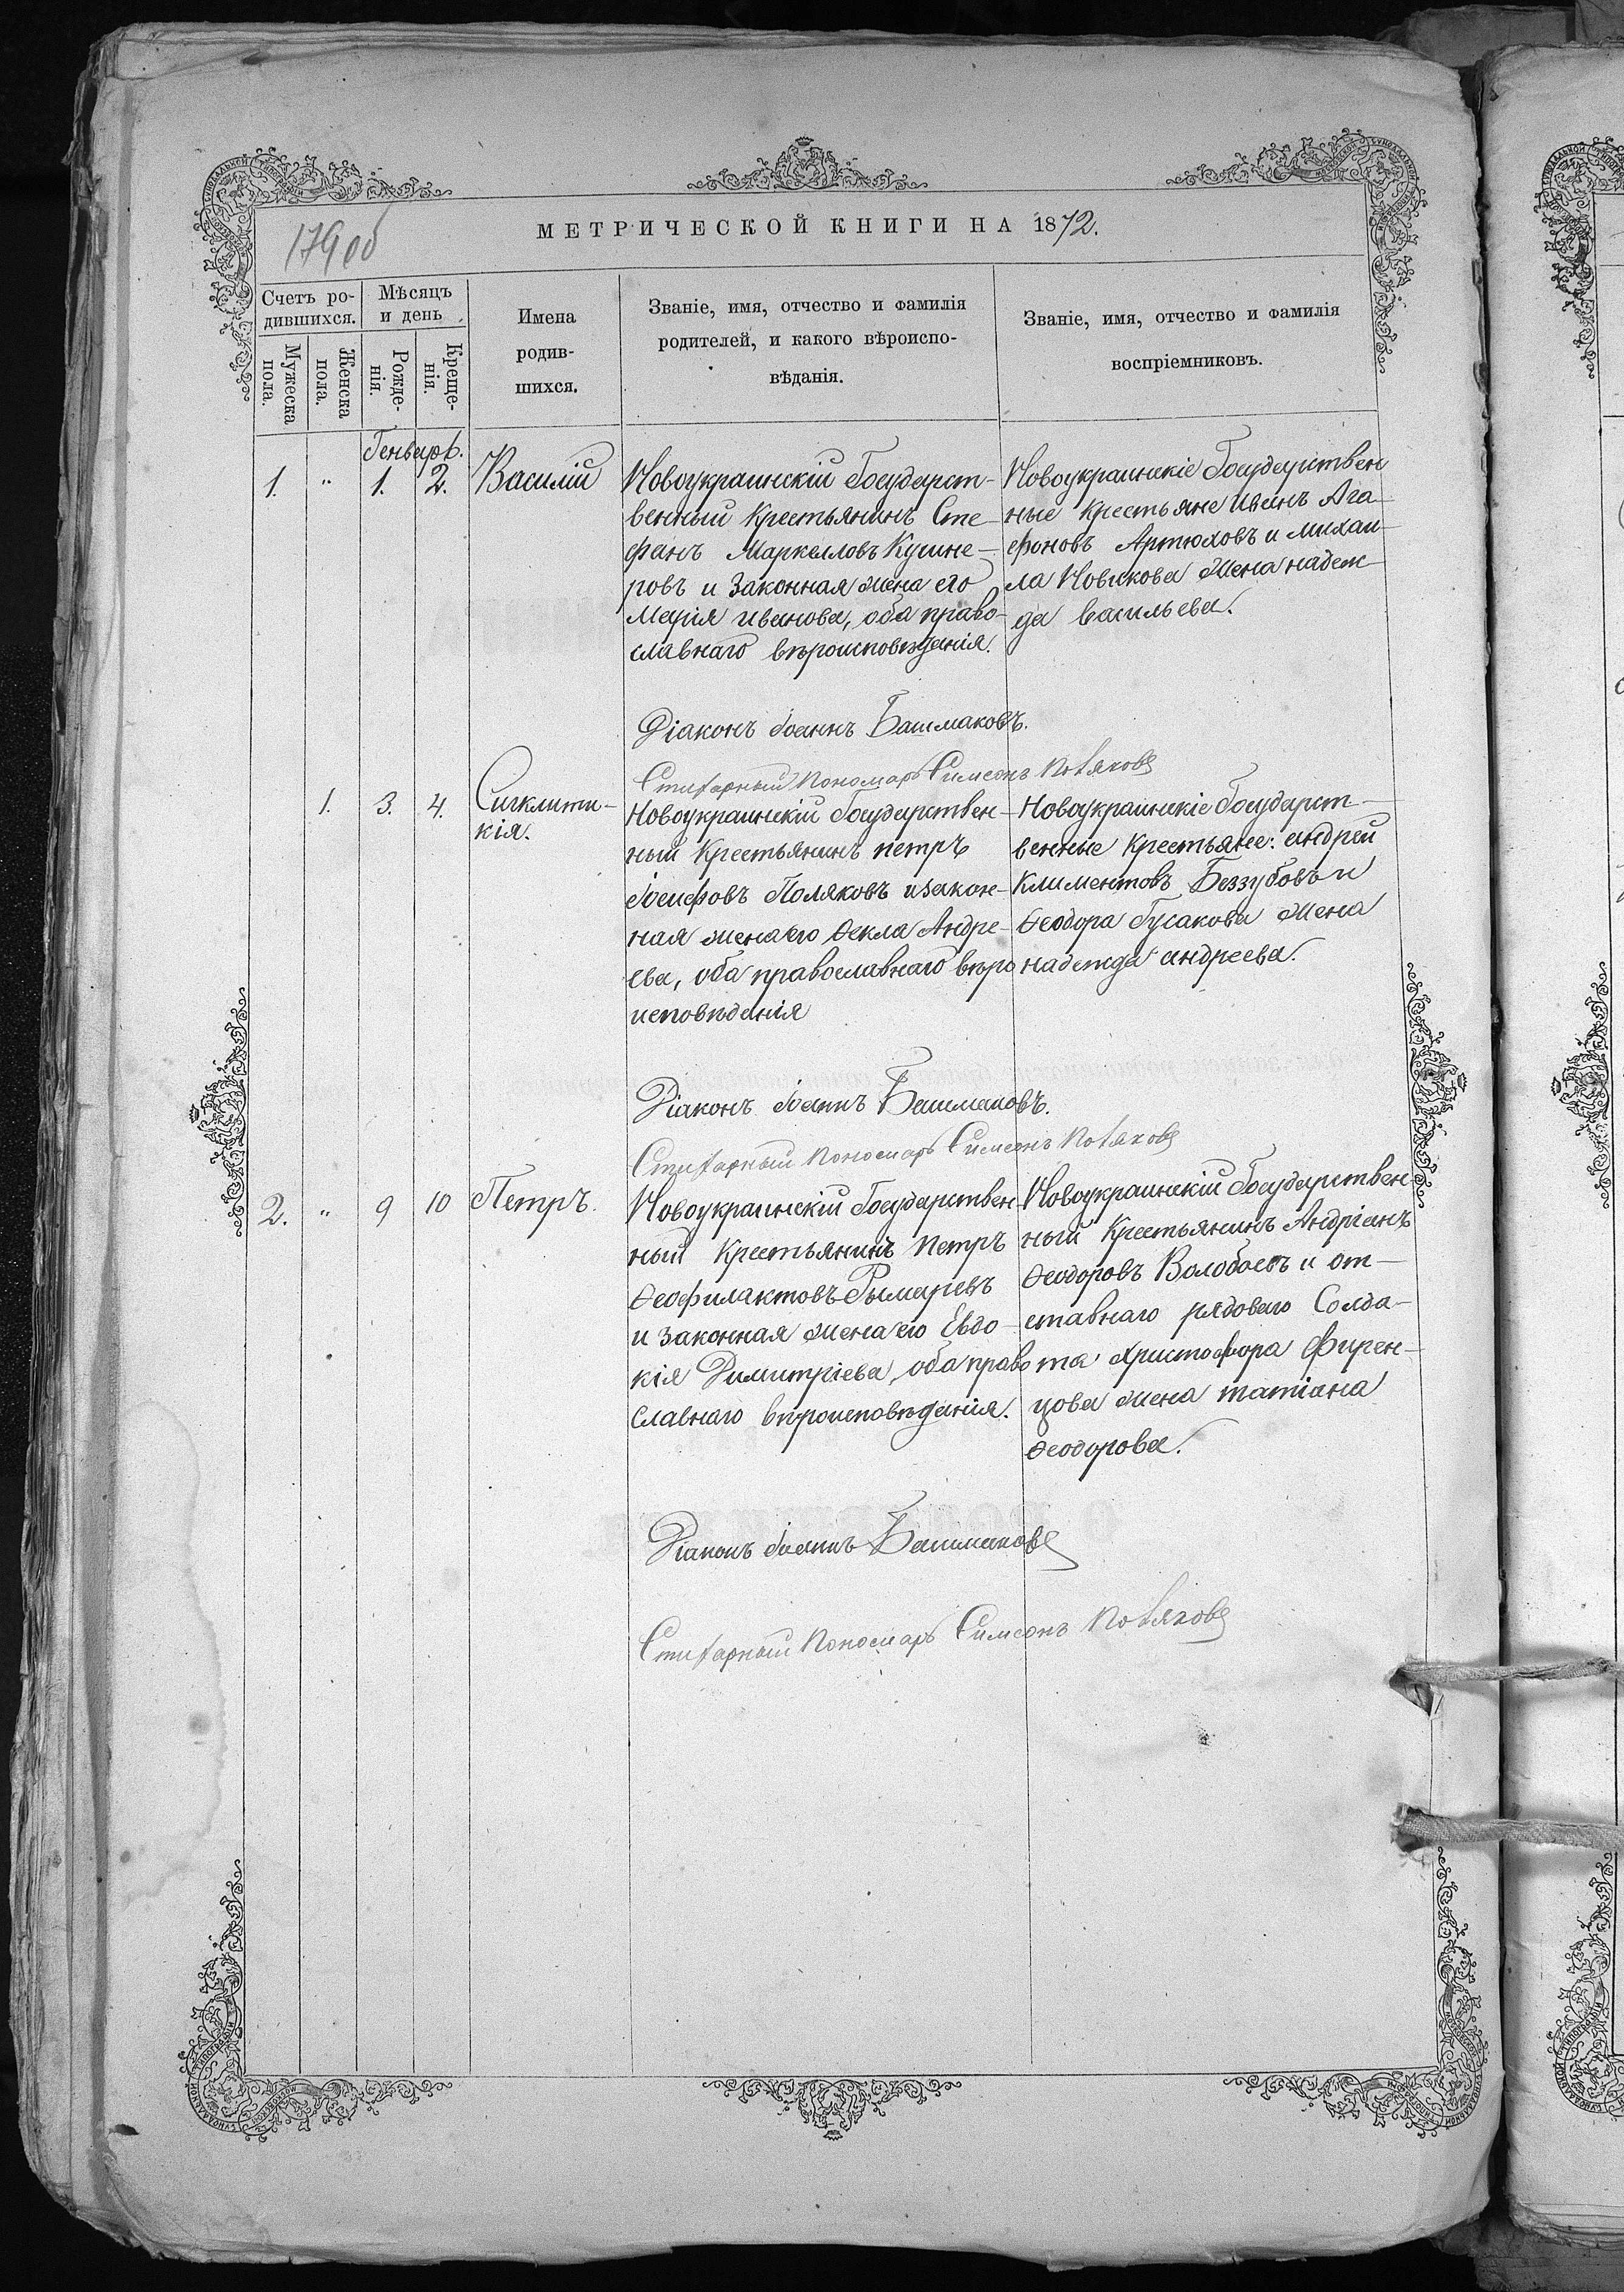 179 об
МЕТРИЧЕСКОЙ КНИГИ НА 1872.
Счетъ ро-
дившихся.
Мѣсяцъ
и день
Мужеска
пола.
Женска
пола.
Рожде-
нія.
Креще-
нія.
Имена
родив-
шихся.
Званіе, имя, отчество и фамилія
родителей, и какого вѣроиспо-
вѣданія.
Званіе, имя, отчество и фамилія
воспріемниковъ.
Генварь.
1. " 1. 2. Василій
Новоукраинскій Государст-
венный Крестьянинъ Сте-
фанъ Маркелловъ Кушне-
ровъ и Законная жена его
Марія Иванова, оба право-
славнаго вѣроисповѣданія.
Новоукраинскіе Государствен
ные Крестьяне Иванъ Ага-
фоновъ Артюховъ и Михаи-
ла Новикова жена Надеж-
да Васильева.
Діаконъ Іоаннъ Башмаковъ.
Стихарный Пономарь Симеонъ Поляковъ
1. 3. 4. Сигклити-
кія.
Новоукраинскій Государствен-
ный Крестьянинъ Петръ
Іосифовъ Поляковъ и закон-
ная жена его Ѳекла Андре-
ева, оба православнаго вѣро
исповѣданія
Новоукраинскіе Государст-
венные Крестьяне: Андрей
Климентовъ Беззубовъ и
Ѳеодора Гусакова жена
Надежда Андреева.
Діаконъ Іоаннъ Башмаковъ.
Стихарный Пономарь Симеонъ Поляковъ
2. " 9 10 Петръ.
Новоукраинскій Государствен-
ный Крестьянинъ Петръ
Ѳеофилактовъ Рымаревъ
и законная жена его Евдо-
кія Димитріева, оба право
славнаго вѣроисповѣданія.
Новоукраинскій Государствен-
ный Крестьянинъ Андріанъ
Ѳеодоровъ Волобоевъ и от-
ставнаго рядоваго Солда-
та Христофора Фирен-
цова жена Татіана
Ѳеодорова.
Діаконъ Іоаннъ Башмаковъ
Стихарный Пономарь Симеонъ Поляковъ